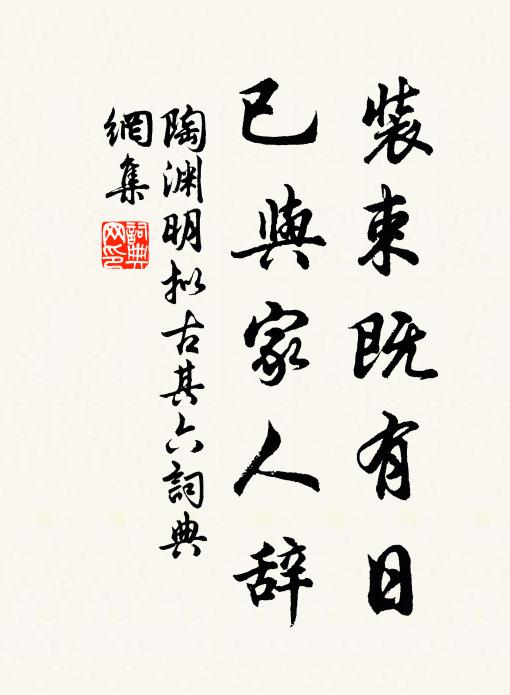 裝束既有日
已與家人辞
陶渊明拟古其六詞典
網集
詞典
网印